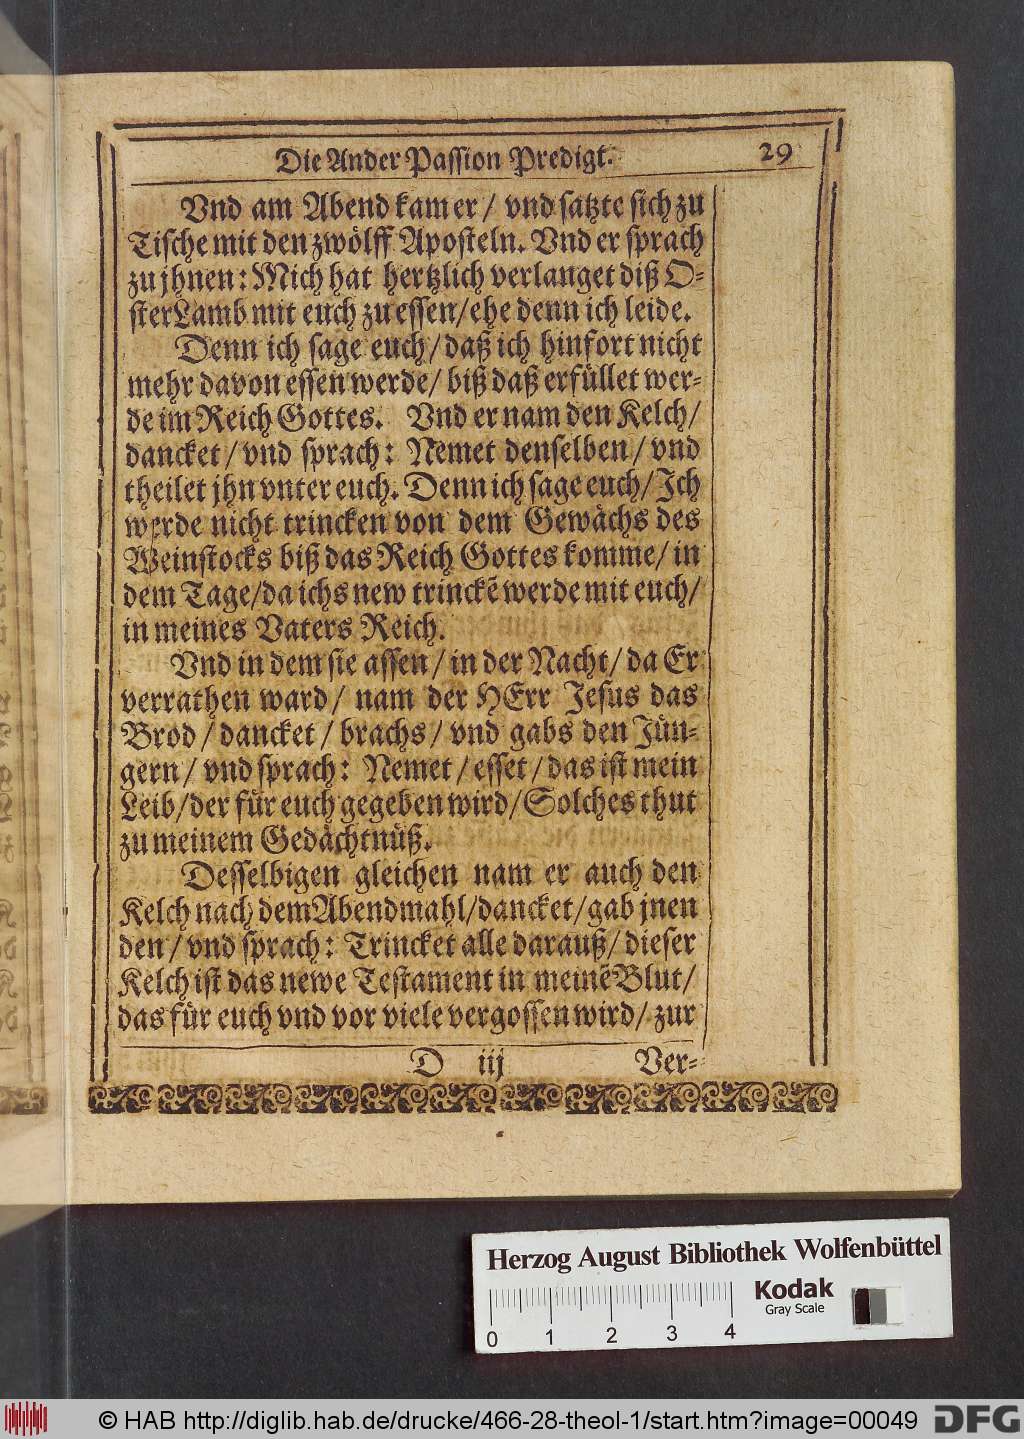 Die Ander Passion Predigt. 29
Vnd am Abend kam er / vnd satzte sich zu
Tische mit den zwölff Aposteln. Vnd er sprach
zu jhnen: Mich hat hertzlich verlanget diß O-
sterLamb mit euch zu essen/ehe denn ich leide.
Denn ich sage euch/daß ich hinfort nicht
mehr davon essen werde/ biß daß erfüllet wer-
de im Reich Gottes. Vnd er nam den Kelch/
dancket/vnd sprach: Nemet denselben/vnd
theilet jhn vnter euch. Denn ich sage euch/Ich
werde nicht trincken von dem Gewächs des
Weinstocks biß das Reich Gottes komme/in
dem Tage/da ichs new trinckē werde mit euch/
in meines Vaters Reich.
Vnd in dem sie assen/in der Nacht/da Er
verrathen ward/ nam der HErr Jesus das
Brod/dancket/brachs/vnd gabs den Jün-
gern/vnd sprach: Nemet/esset/das ist mein
Leib/der für euch gegeben wird/Solches thut
zu meinem Gedächtnüß.
Desselbigen gleichen nam er auch den
Kelch nach dem Abendmahl/dancket/gab jnen
den/vnd sprach: Trincket alle darauß/dieser
Kelch ist das newe Testament in meinē Blut/
das für euch vnd vor viele vergossen wird/zur
D iij Ver-
Herzog August Bibliothek Wolfenbüttel
Kodak
Gray Scale
0 1 2 3 4
© HAB http://diglib.hab.de/drucke/466-28-theol-1/start.htm?image=00049 DFG